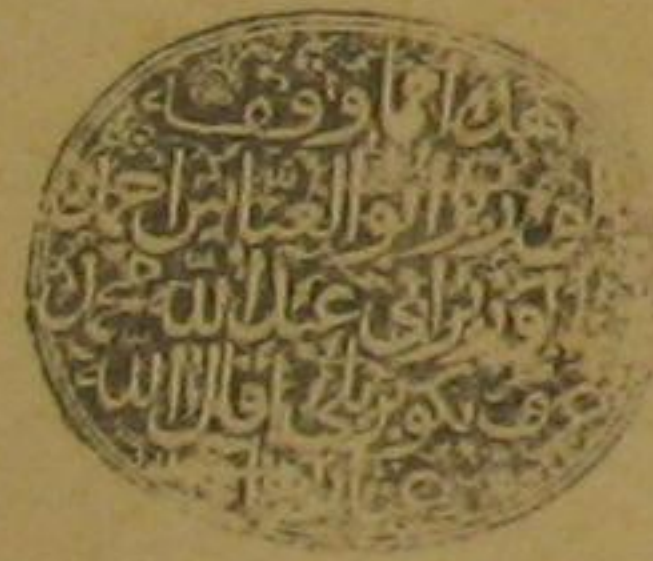 هذا مما وقفه
الوزير ابو العباس احمد بن
الوزير ابي عبد الله محمد
عرف بكوبريلي اقال الله
عثارهما